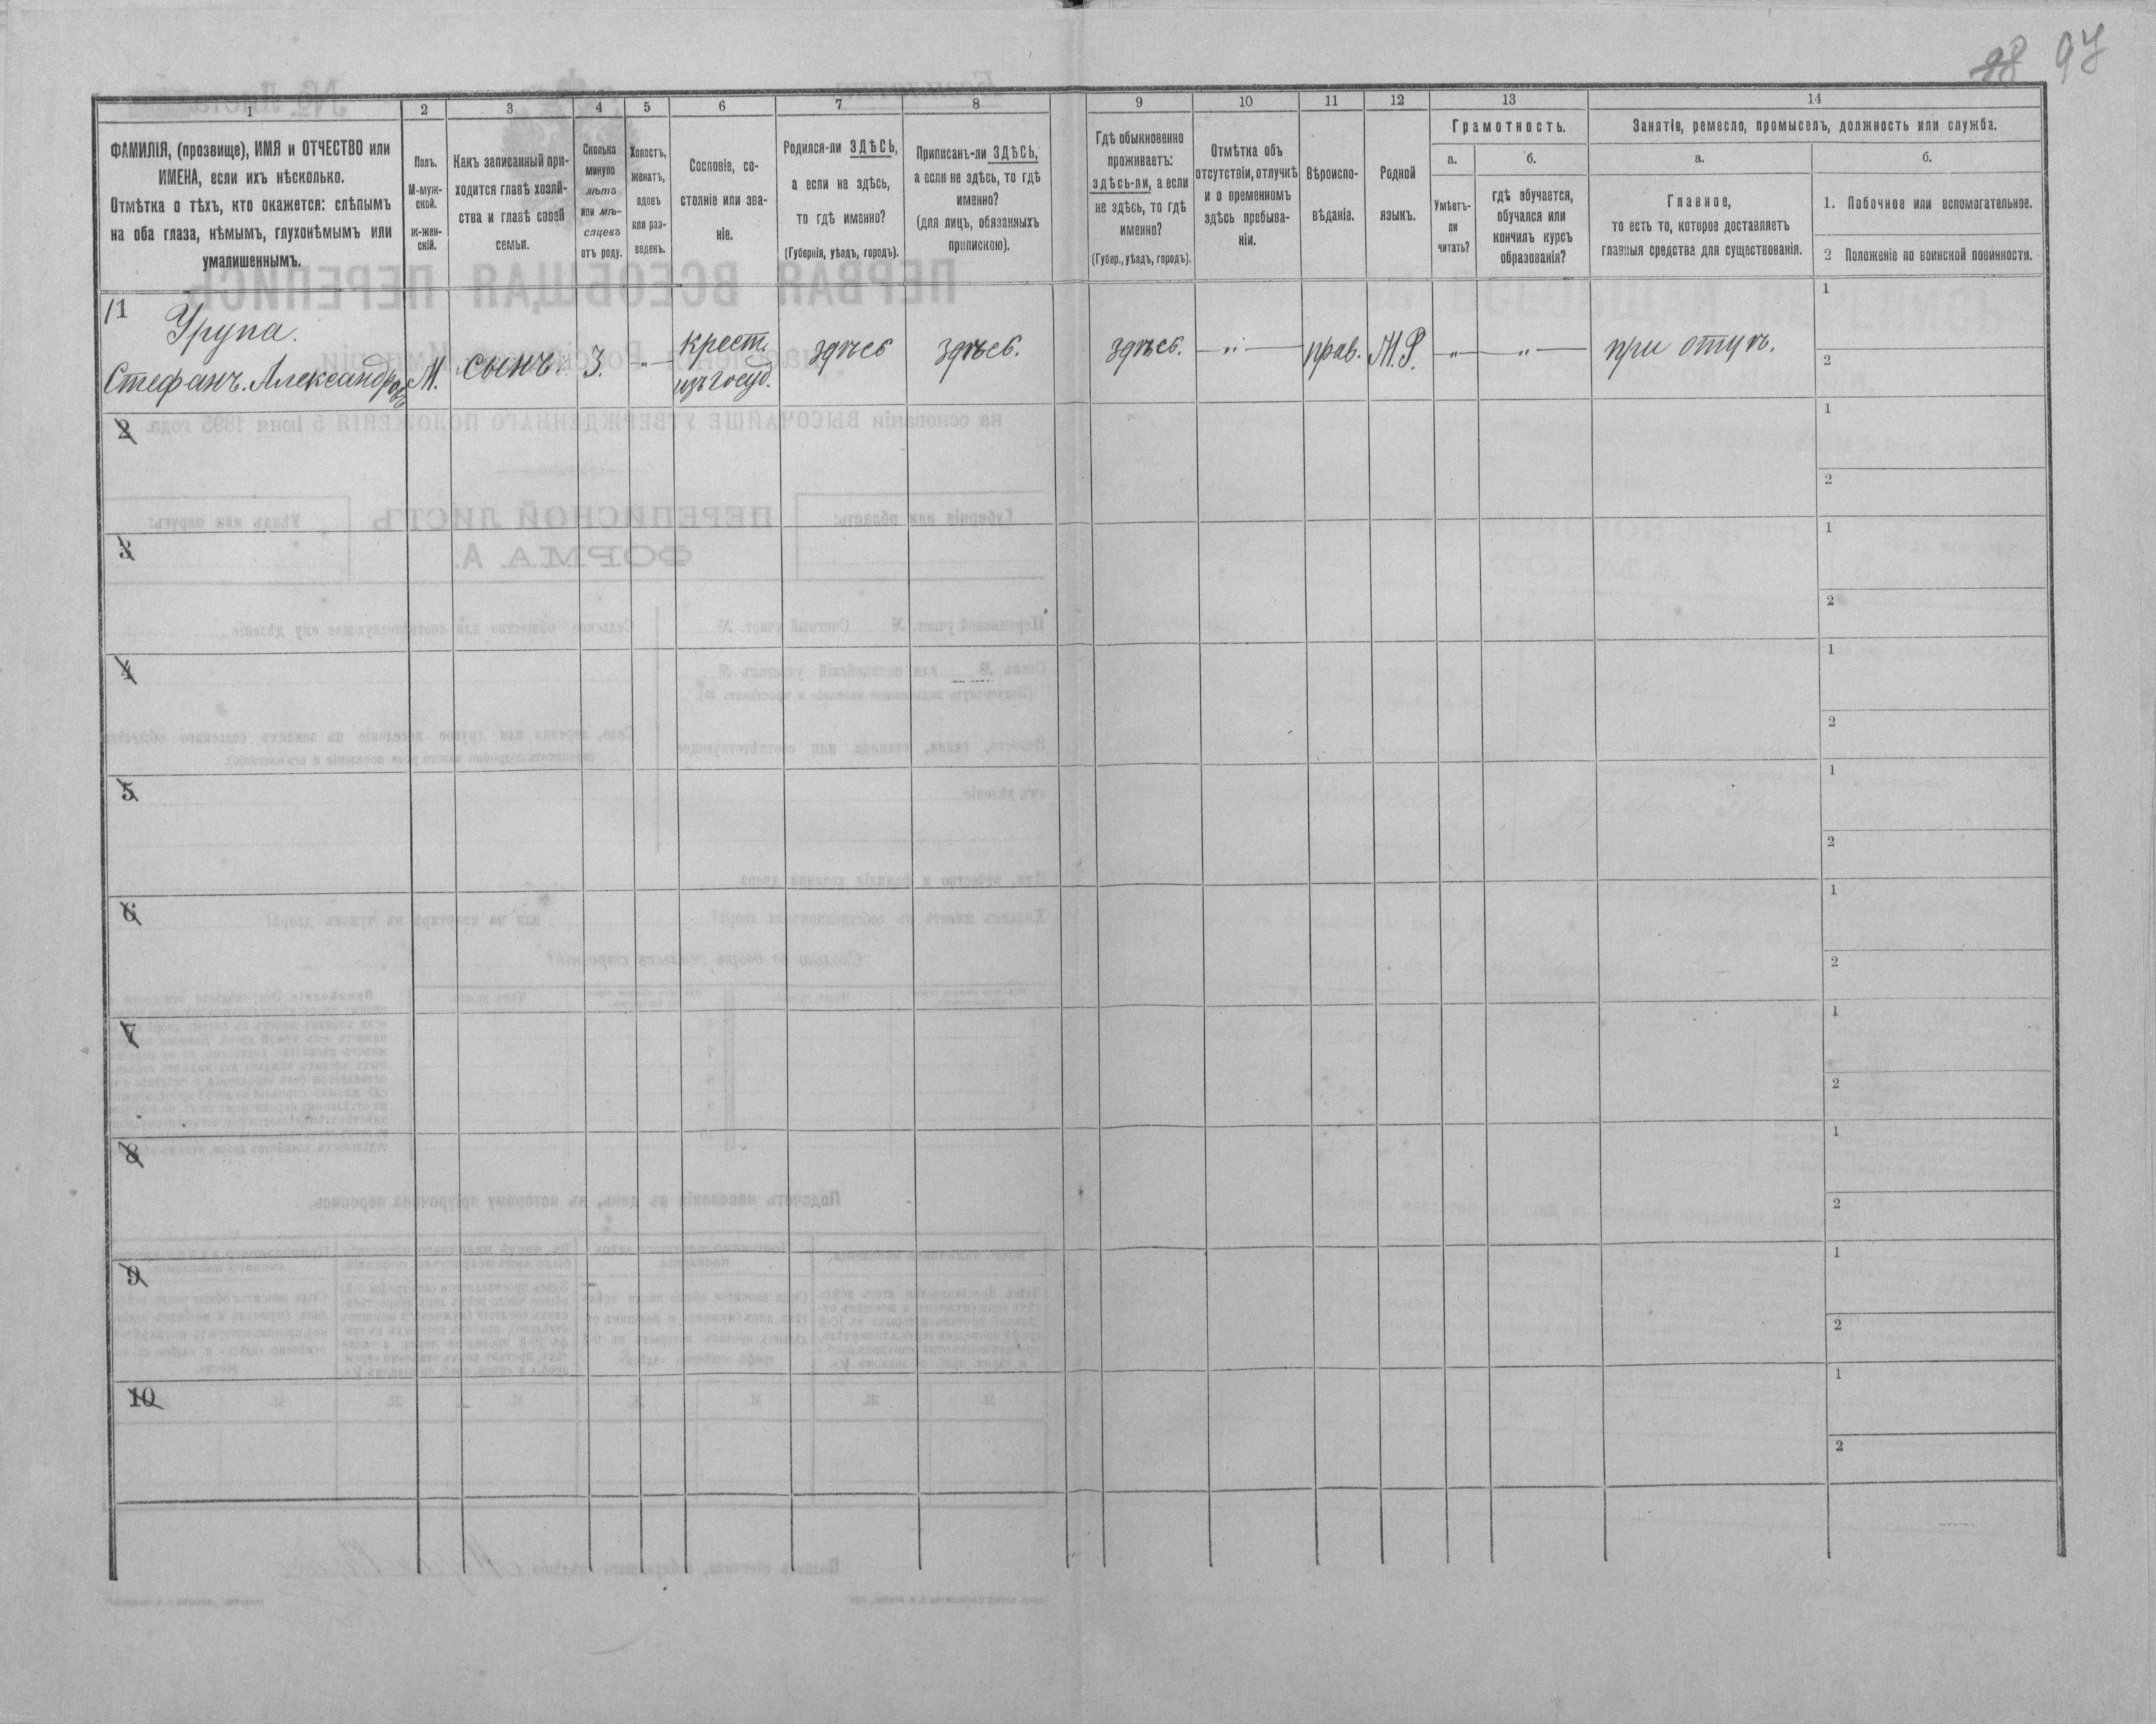 88 97
1 2 3 4 5 6 7 8 9 10 11 12 13 14
ФАМИЛІЯ, (прозвище), ИМЯ и ОТЧЕСТВО или
ИМЕНА, если ихъ нѣсколько.
Отмѣтка о тѣхъ, кто окажется: слѣпымъ
на оба глаза, нѣмымъ, глухонѣмымъ или
умалишеннымъ.
Полъ.
М-муж-
ской.
ж-жен-
скій.
Какъ записанный при-
ходится главѣ хозяй-
ства и главѣ своей
семьи.
Сколько
минуло
лѣтъ
или мѣ-
сяцевъ
отъ роду.
Холостъ,
женатъ,
вдовъ
или раз-
веденъ.
Сословіе, со-
стояніе или зва-
ніе.
Родился-ли ЗДѢСЬ,
а если не здѣсь,
то гдѣ именно?
(Губернія, уѣздъ, городъ).
Приписанъ-ли ЗДѢСЬ,
а если не здѣсь, то гдѣ
именно?
(для лицъ, обязанныхъ
припискою).
Гдѣ обыкновенно
проживаетъ:
здѣсь-ли, а если
не здѣсь, то гдѣ
именно?
(Губер., уѣздъ, городъ).
Отмѣтка объ
отсутствіи, отлучкѣ
и о временномъ
здѣсь пребыва-
ніи.
Вѣроиспо-
вѣданіе.
Родной
языкъ.
Грамотность.
а.
Умѣетъ-
ли
читать?
б.
гдѣ обучается,
обучался или
кончилъ курсъ
образованія?
Занятіе, ремесло, промыселъ, должность или служба.
а.
Главное,
то есть то, которое доставляетъ
главныя средства для существованія.
б.
1. Побочное или вспомогательное.
2 Положеніе по воинской повинности.
11
Урупа.
Стефанъ. Александровъ
М.
сынъ.
3.
"
крест.
изъ госуд.
здѣсь
здѣсь.
здѣсь.
"
прав.
М.Р.
"
"
при отцѣ.
1
2
2
1
2
3
1
2
4
1
2
5
1
2
6
1
2
7
1
2
8
1
2
9
1
2
10
1
2